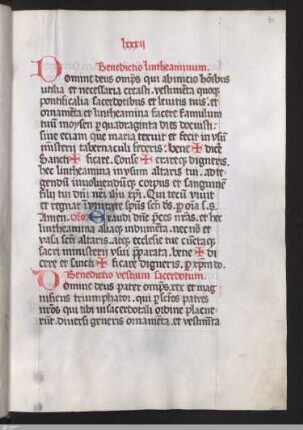 lxxxii
Benedictio lintheaminum.
Domine deus omps qui ab inicio hoibus
utilia et necessaria creasti. vestimenta quoqz
pontificalia sacerdotibus et levitis tuis. et
ornameta et lintheamina facere famulum
tuu moysen per quadraginta dies docuisti.
sive eciam que maria texuit et fecit in usum
misterii tabernaculi federis: bene ✠ dicere
Sancti ✠ ficare. Conse ✠ crareqz digneris.
hec lintheamina in usum altaris tui. ad te
gendum involvendumqz corpus et sanguinem
filii tui dni nri ihu xpi. Qui tecu vivit
et regnat in unitate spus sci ds. p oia s. s.
Amen. Oro. Exaudi dne preces nras. et hec
linthamina aliaqz indumeta. nec no et
vasa sci altaris. atqz ecclesie tue cuctaqz
sacri misterii usui pparata. bene ✠ di
cere et sancti ✠ ficare digneris. p xpm do.
Benedictio vestium sacerdotum.
Domine deus pater omps. rex et mag
nificus triumphator. qui p sctos patres
nros qui tibi in sacerdotali ordine placue
rut. diversi generis ornameta. et vestimeta